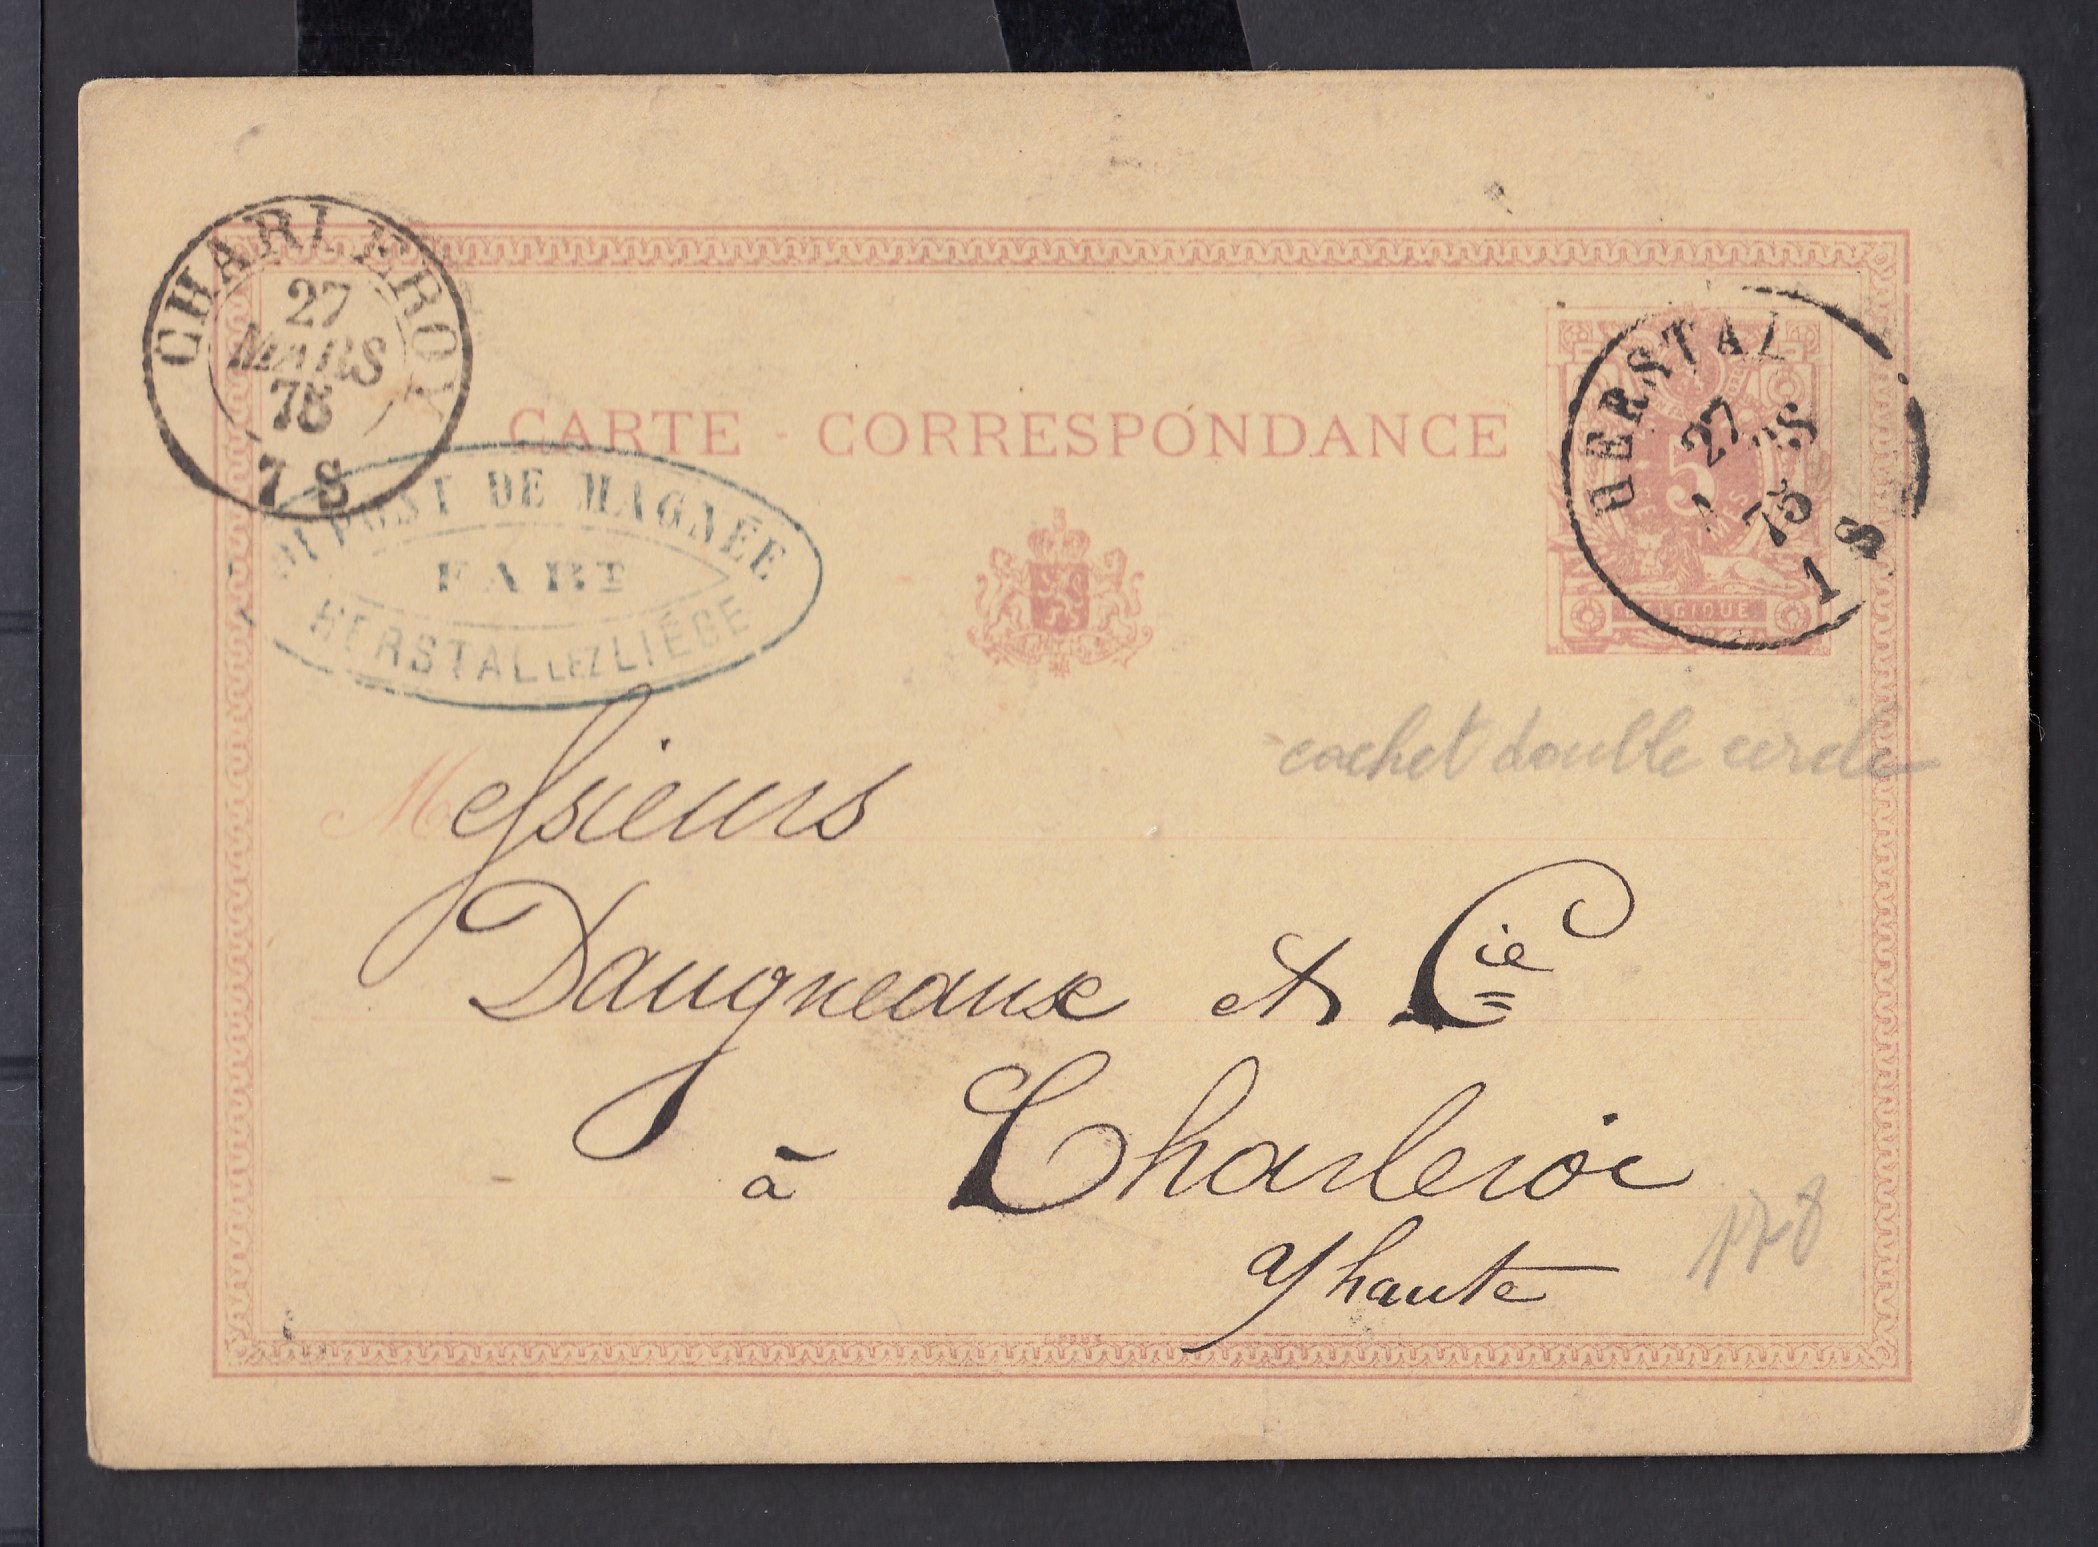 CHARLEROY
27
MARS
75
7 S
CARTE - CORRESPONDANCE
HERSTAL
27
75
1 S
5
BELGIQUE
DUPONT DE MAGNÉE
FABT
HERSTAL LEZ LIÉGE
cachet double cercle
Messieurs
Daugneaux et Cie
à Charleroi
y haute
178